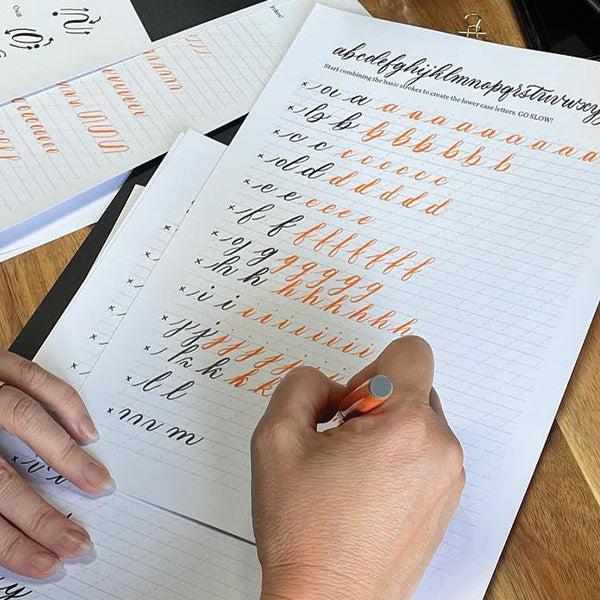 Oval
abcdefghijklmnopqrstuvwxyz
Start combining the basic strokes to create the lower case letters. GO SLOW!
× a a a a a a a a a a a a
× b b b b b b b b
× c c c c c c c c
× d d d d d d d d
× e e e e e e
× f f f f f f f f f
× g g g g g g g g
× h h h h h h h h h
× i i i i i i i i i i
× j j j j j j j j j
× k k k k
× l l
× m m